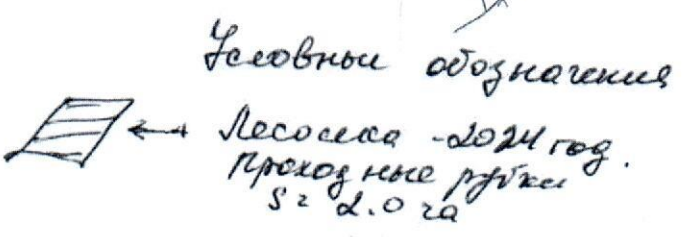 Условные обозначения
Лесосека - 2024 год.
Проходные рубки
S = 2.0 га